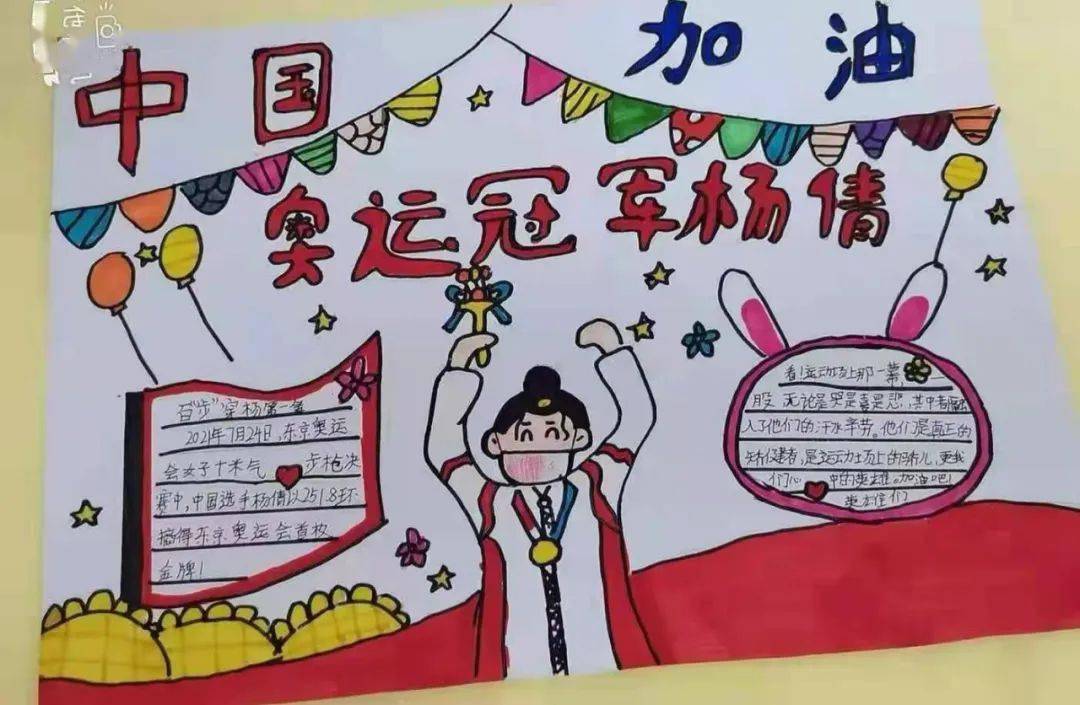 中国 加油
奥运冠军杨倩
百“步”穿杨第一金
2021年7月24日,东京奥运
会女子十米气 步枪决
赛中,中国选手杨倩以251.8环
摘得东京奥运会首枚
金牌!
看!运动场上那一幕,
股 无论是哭是喜是悲,其中都融
入了他们的汗水辛劳。他们是真正的
矫健者,是运动场上的骄儿,更我
们心 中的英雄。加油吧!
英雄们